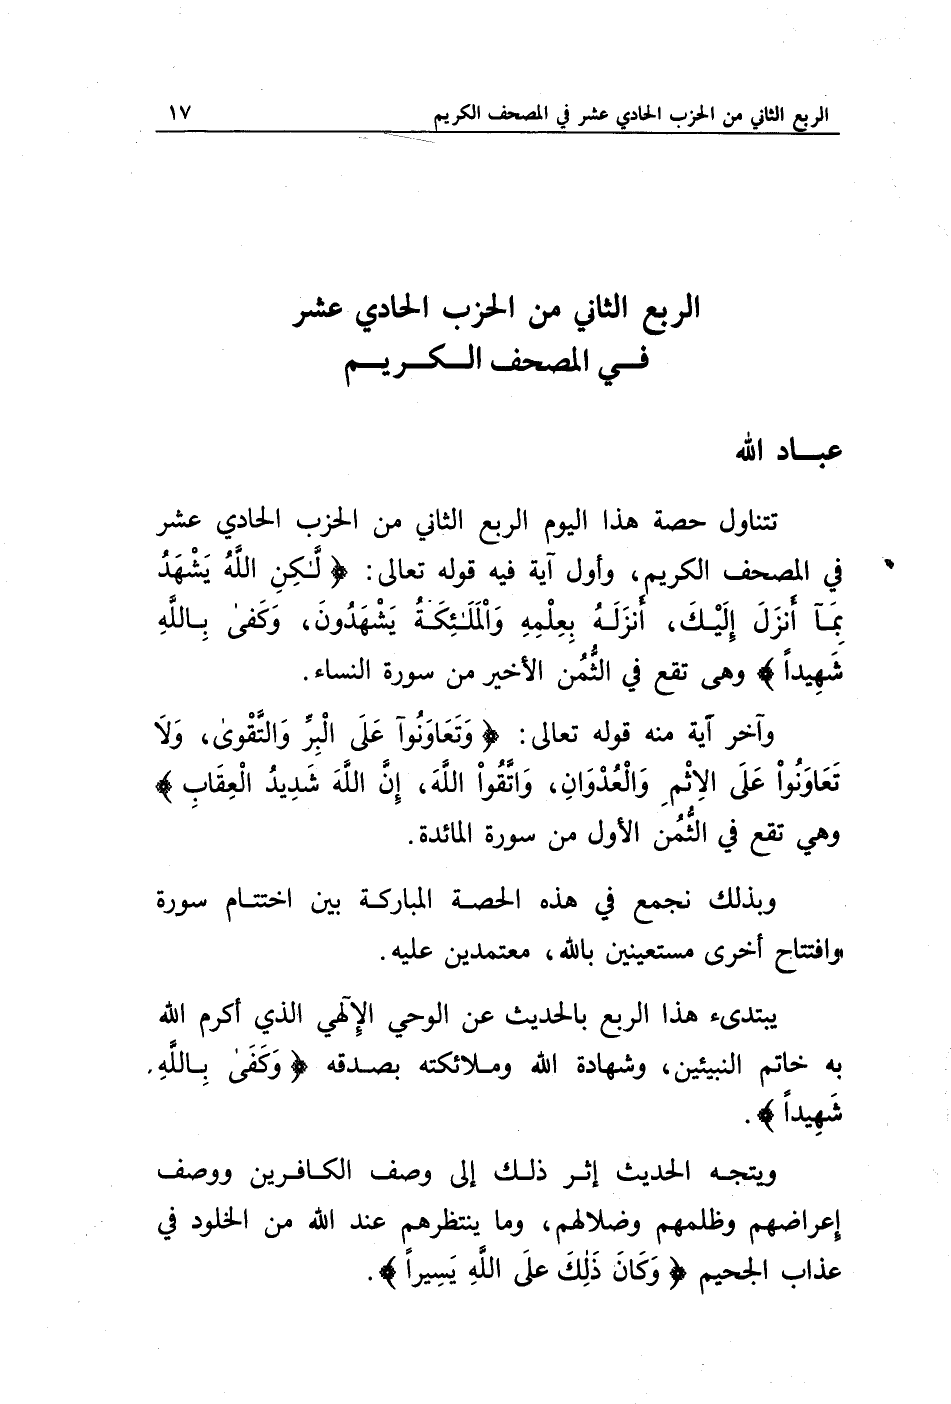 الربع الثاني من الحزب الحادي عشر في المصحف الكريم ١٧
الربع الثاني من الحزب الحادي عشر
في المصحف الكريم
عباد الله
تتناول حصة هذا اليوم الربع الثاني من الحزب الحادي عشر
في المصحف الكريم، وأول آية فيه قوله تعالى: ﴿ لَّـٰكِنِ اللَّهُ يَشْهَدُ
بِمَآ أَنزَلَ إِلَيْكَ، أَنزَلَهُ بِعِلْمِهِ وَالْمَلَـٰئِكَةُ يَشْهَدُونَ، وَكَفىٰ بِاللَّهِ
شَهِيداً ﴾ وهى تقع في الثُّمُن الأخير من سورة النساء.
وآخر آية منه قوله تعالى: ﴿ وَتَعَاوَنُوآ عَلَى الْبِرِّ وَالتَّقْوىٰ، وَلَا
تَعَاوَنُواْ عَلَى الاِثْمِ وَالْعُدْوَانِ، وَاتَّقُواْ اللَّهَ، إِنَّ اللَّهَ شَدِيدُ الْعِقَابِ ﴾
وهي تقع في الثُّمُن الأول من سورة المائدة.
وبذلك نجمع في هذه الحصة المباركة بين اختتام سورة
وافتتاح أخرى مستعينين بالله، معتمدين عليه.
يبتدىء هذا الربع بالحديث عن الوحي الإلٓهي الذي أكرم الله
به خاتم النبيئين، وشهادة الله وملائكته بصدقه ﴿ وَكَفَىٰ بِاللَّهِ
شَهِيداً ﴾.
ويتجه الحديث إثر ذلك إلى وصف الكافرين ووصف
إعراضهم وظلمهم وضلالهم، وما ينتظرهم عند الله من الخلود في
عذاب الجحيم ﴿ وَكَانَ ذَٰلِكَ علَى اللَّهِ يَسِيراً ﴾.